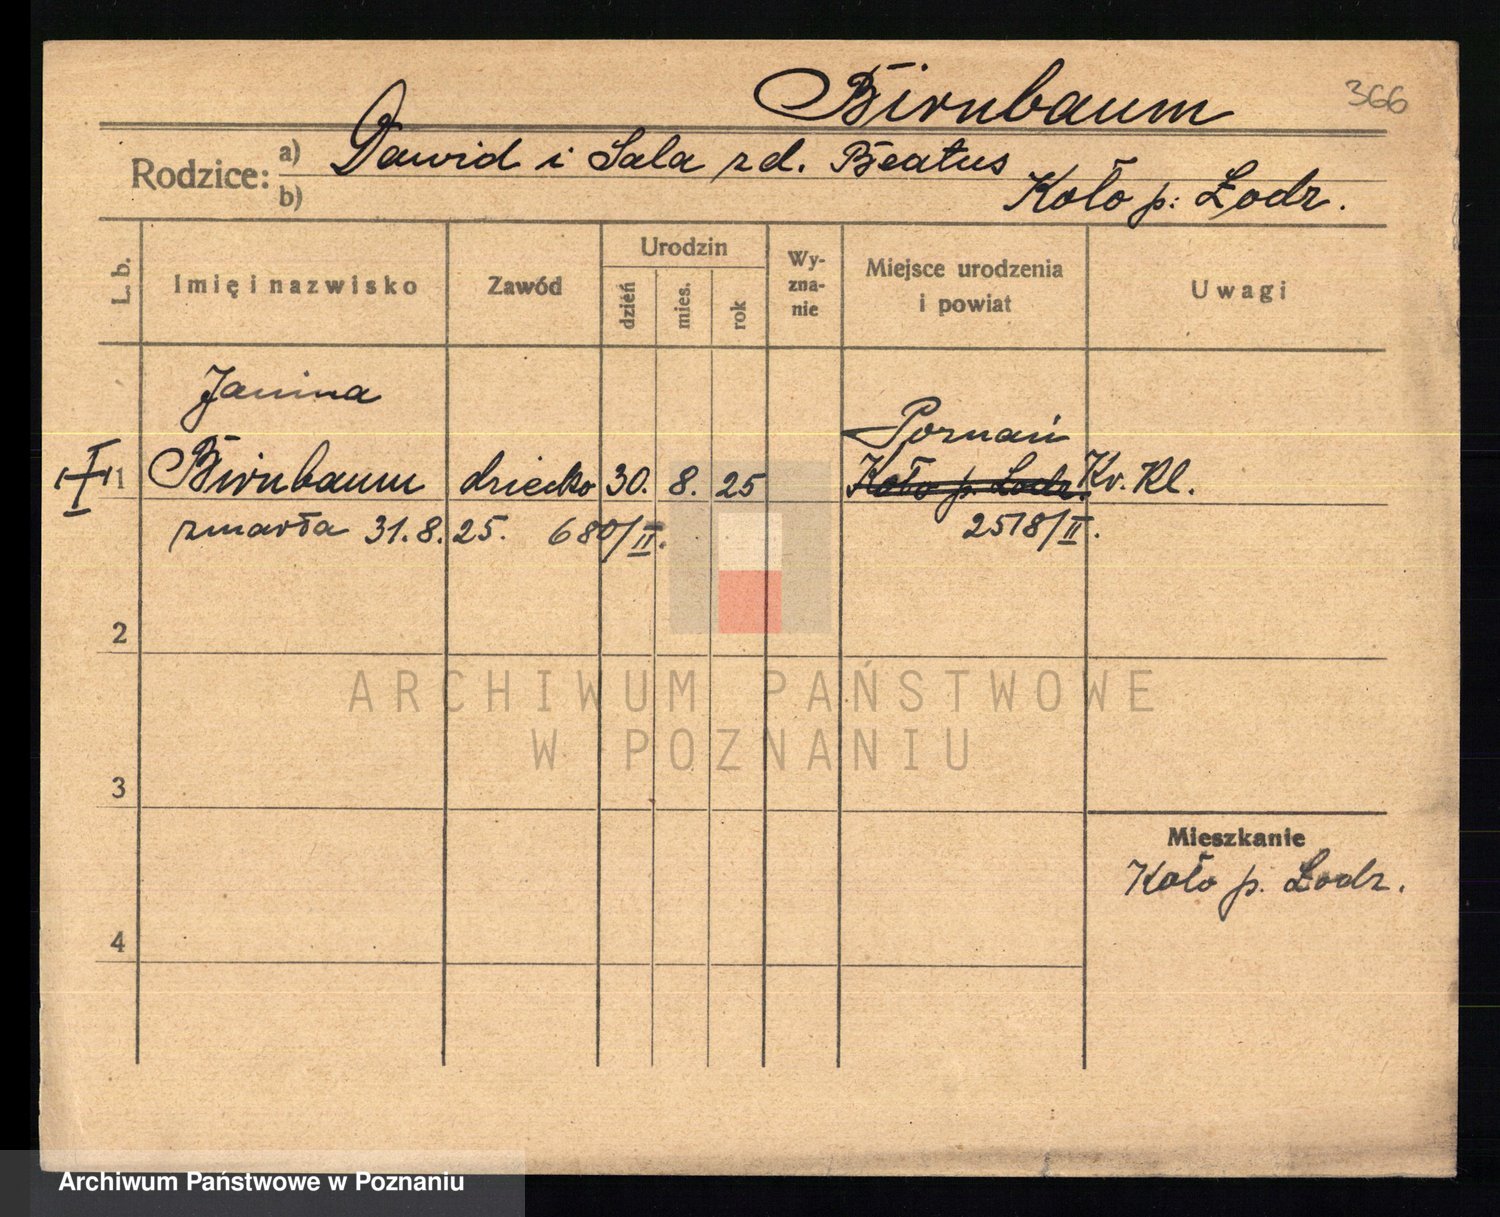 Birnbaum
366
Rodzice: a) Dawid i Sala zd. Beatus
b) Koło p: Łodz.
L. b.
Imię i nazwisko
Zawód
Urodzin
dzień
mies.
rok
Wy-
zna-
nie
Miejsce urodzenia
i powiat
Uwagi
Janina
Poznań
1 Birnbaum dziecko 30. 8. 25 Koło p. Lodz. Kr. Kl.
zmarła 31. 8. 25. 680/II. 2518/II.
2
3
4
Mieszkanie
Koło p. Łodz.
ARCHIWUM PAŃSTWOWE
W POZNANIU
Archiwum Państwowe w Poznaniu